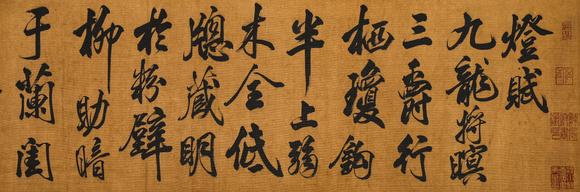 燈賦
九龍將暝
三爵行
栖瓊鈎
半上弱
木全低
牕藏明
於粉壁
柳助暗
于蘭閨